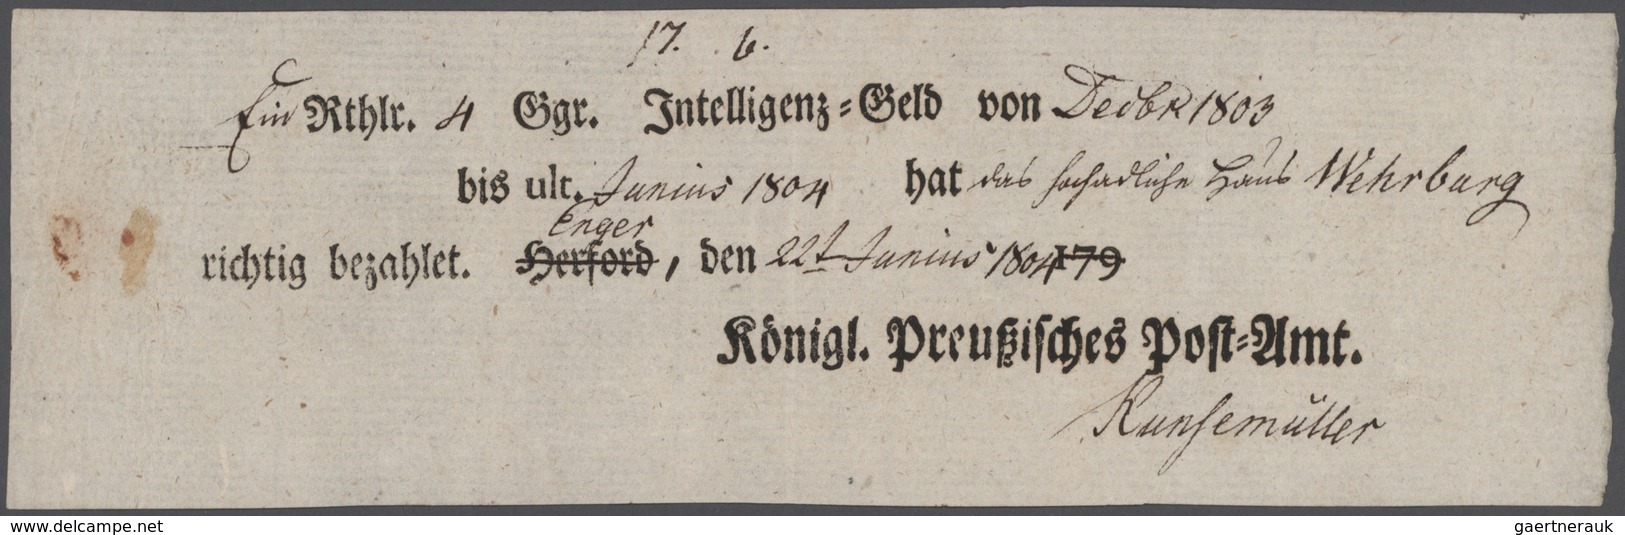 17. 6.
Ein Rthlr. 4 Ggr. Intelligenz-Geld von Decbr 1803
bis ult. Junius 1804 hat das hochadliche Haus Wehrburg
Enger
richtig bezahlet. Herford, den 22t Junius 1804 179
Königl. Preußisches Post-Amt.
Kunsemüller
www.delcampe.net
gaertnerauk